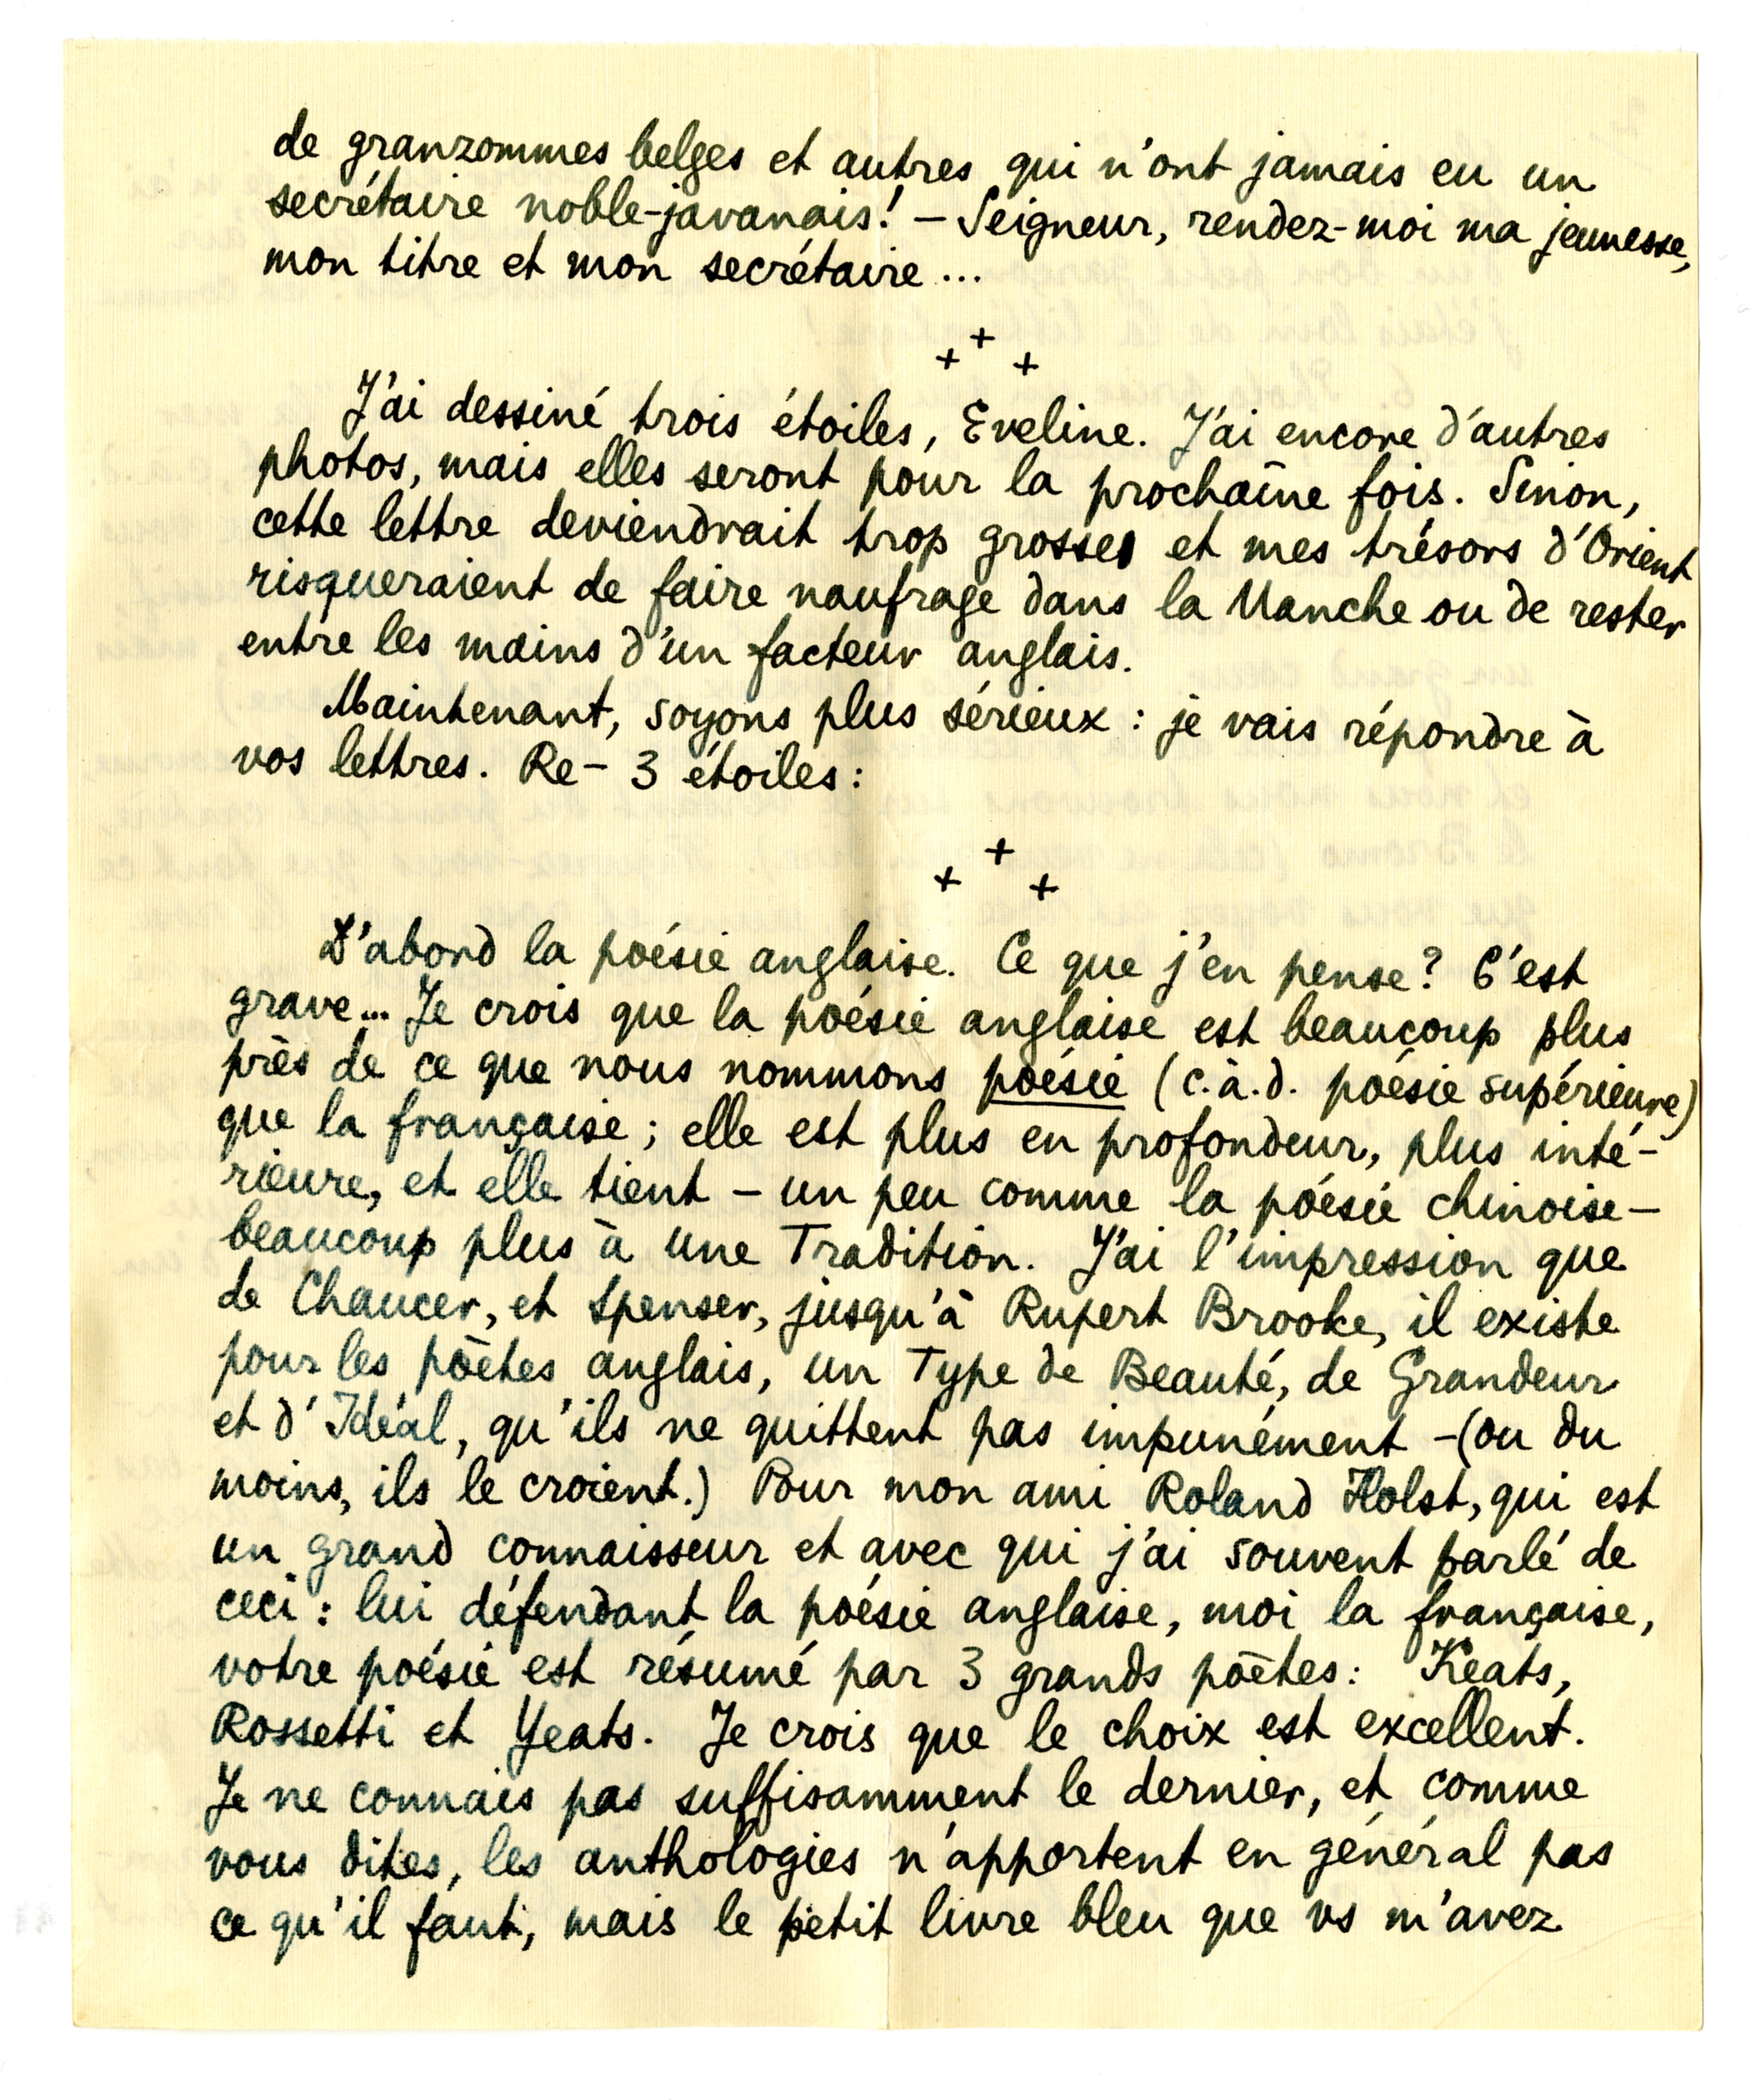 de granzommes belges et autres qui n'ont jamais eu un
secrétaire noble-javanais! — Seigneur, rendez-moi ma jeunesse,
mon titre et mon secrétaire ...
+ + +
J'ai dessiné trois étoiles, Eveline. J'ai encore d'autres
photos, mais elles seront pour la prochaine fois. Sinon,
cette lettre deviendrait trop grosse et mes trésors d'Orient
risqueraient de faire naufrage dans la Manche ou de rester
entre les mains d'un facteur anglais.
Maintenant, soyons plus sérieux : je vais répondre à
vos lettres. Re- 3 étoiles :
+ + +
D'abord la poésie anglaise. Ce que j'en pense? C'est
grave... Je crois que la poésie anglaise est beaucoup plus
près de ce que nous nommons poésie (c.à.d. poésie supérieure)
que la française ; elle est plus en profondeur, plus inté-
rieure, et elle tient – un peu comme la poésie chinoise –
beaucoup plus à une Tradition. J'ai l'impression que
de Chaucer, et Spenser, jusqu'à Rupert Brooke, il existe
pour les poètes anglais, un Type de Beauté, de Grandeur
et d'Idéal, qu'ils ne quittent pas impunément – (ou du
moins, ils le croient.) Pour mon ami Roland Holst, qui est
un grand connaisseur et avec qui j'ai souvent parlé de
ceci : lui défendant la poésie anglaise, moi la française,
votre poésie est résumé par 3 grands poètes : Keats,
Rossetti et Yeats. Je crois que le choix est excellent.
Je ne connais pas suffisamment le dernier, et comme
vous dites, les anthologies n'apportent en général pas
ce qu'il faut, mais le petit livre bleu que vs m'avez